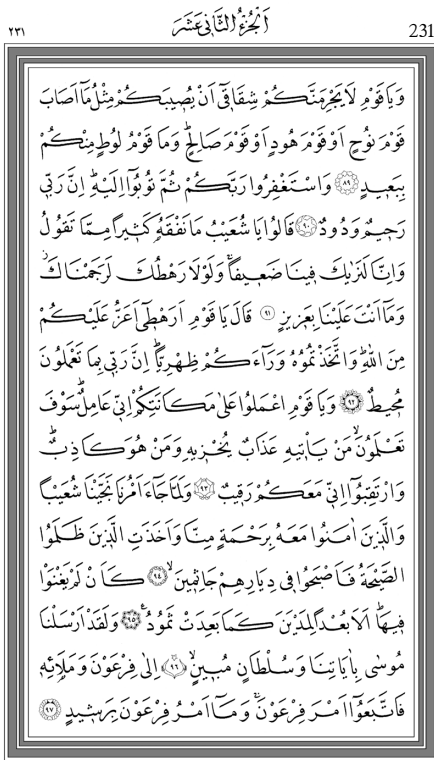 ٢٣١ اَلْجُزْءُ الثَّانِي عَشَرَ 231
وَيَا قَوْمِ لَا يَجْرِمَنَّكُمْ شِقَاقٓي اَنْ يُصٖيبَكُمْ مِثْلُ مَٓا اَصَابَ
قَوْمَ نُوحٍ اَوْ قَوْمَ هُودٍ اَوْ قَوْمَ صَالِحٍۜ وَمَا قَوْمُ لُوطٍ مِنْكُمْ
بِبَعٖيدٍ ﴿٨٩﴾ وَاسْتَغْفِرُوا رَبَّكُمْ ثُمَّ تُوبُٓوا اِلَيْهِۜ اِنَّ رَبّٖي
رَحٖيمٌ وَدُودٌ ﴿٩٠﴾ قَالُوا يَا شُعَيْبُ مَا نَفْقَهُ كَثٖيرًا مِمَّا تَقُولُ
وَاِنَّا لَنَرٰيكَ فٖينَا ضَعٖيفًاۚ وَلَوْلَا رَهْطُكَ لَرَجَمْنَاكَۘ
وَمَٓا اَنْتَ عَلَيْنَا بِعَزٖيزٍ ﴿٩١﴾ قَالَ يَا قَوْمِ اَرَهْطٖٓي اَعَزُّ عَلَيْكُمْ
مِنَ اللّٰهِۜ وَاتَّخَذْتُمُوهُ وَرَٓاءَكُمْ ظِهْرِيًّاۜ اِنَّ رَبّٖي بِمَا تَعْمَلُونَ
مُحٖيطٌ ﴿٩٢﴾ وَيَا قَوْمِ اعْمَلُوا عَلٰى مَكَانَتِكُمْ اِنّٖي عَامِلٌۜ سَوْفَ
تَعْلَمُونَۙ مَنْ يَأْتٖيهِ عَذَابٌ يُخْزٖيهِ وَمَنْ هُوَ كَاذِبٌۜ
وَارْتَقِبُٓوا اِنّٖي مَعَكُمْ رَقٖيبٌ ﴿٩٣﴾ وَلَمَّا جَٓاءَ اَمْرُنَا نَجَّيْنَا شُعَيْبًا
وَالَّذٖينَ اٰمَنُوا مَعَهُ بِرَحْمَةٍ مِنَّا وَاَخَذَتِ الَّذٖينَ ظَلَمُوا
الصَّيْحَةُ فَاَصْبَحُوا فٖي دِيَارِهِمْ جَاثِمٖينَۙ ﴿٩٤﴾ كَاَنْ لَمْ يَغْنَوْا
فٖيهَاۜ اَلَا بُعْدًا لِمَدْيَنَ كَمَا بَعِدَتْ ثَمُودُ۟ ﴿٩٥﴾ وَلَقَدْ اَرْسَلْنَا
مُوسٰى بِاٰيَاتِنَا وَسُلْطَانٍ مُبٖينٍۙ ﴿٩٦﴾ اِلٰى فِرْعَوْنَ وَمَلَا۬ئِهٖ
فَاتَّبَعُٓوا اَمْرَ فِرْعَوْنَۚ وَمَٓا اَمْرُ فِرْعَوْنَ بِرَشٖيدٍ ﴿٩٧﴾